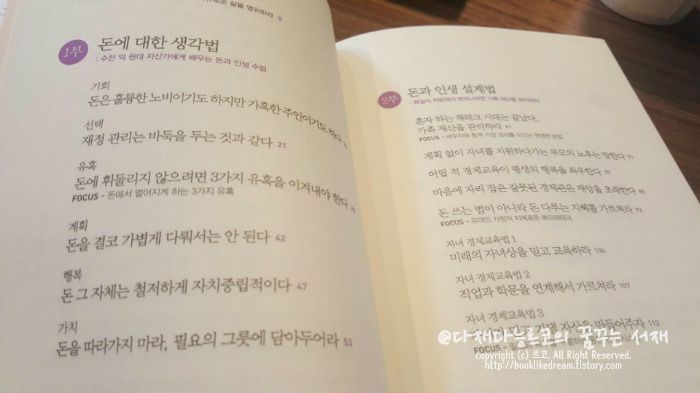 삶을 영위하라 5
1부 돈에 대한 생각법
: 수천 억 원대 자산가에게 배우는 돈과 인생 수업
기회
돈은 훌륭한 노비이기도 하지만 가혹한 주인이기도 하다
선택
재정 관리는 바둑을 두는 것과 같다 21
유혹
돈에 휘둘리지 않으려면 3가지 유혹을 이겨내야 한다
FOCUS - 돈에서 멀어지게 하는 3가지 유혹
계획
돈을 결코 가볍게 다뤄서는 안 된다 42
행복
돈 그 자체는 철저하게 가치중립적이다 47
가치
돈을 따라가지 마라, 필요의 그릇에 담아두어라 53
2부 돈과 인생 설계법
혼자 하는 재테크 시대는 끝났다,
가족 재산을 관리하라 61
FOCUS - 배우자와 함께 가정 경제를 이끄는 현명한 방법
계획 없이 자녀를 지원하다가는 부모의 노후는 망한다
어릴 적 경제교육이 평생의 행복을 좌우한다
마음에 자리 잡은 잘못된 경제관은 재앙을 초래한다
돈 쓰는 법이 아니라 돈 다루는 지혜를 가르쳐라 93
FOCUS - 유대인 가정의 지혜로운 용돈재테크
자녀 경제교육법 1
미래의 자녀상을 믿고 교육하라 104
자녀 경제교육법 2
직업과 학문을 연계해서 가르쳐라 107
자녀 경제교육법 3
만들어주자 112
FOCUS -
@다재다능르코의 꿈꾸는 서재
copyright (c) 르코. All Right Reserved.
http://booklikedream.tistory.com